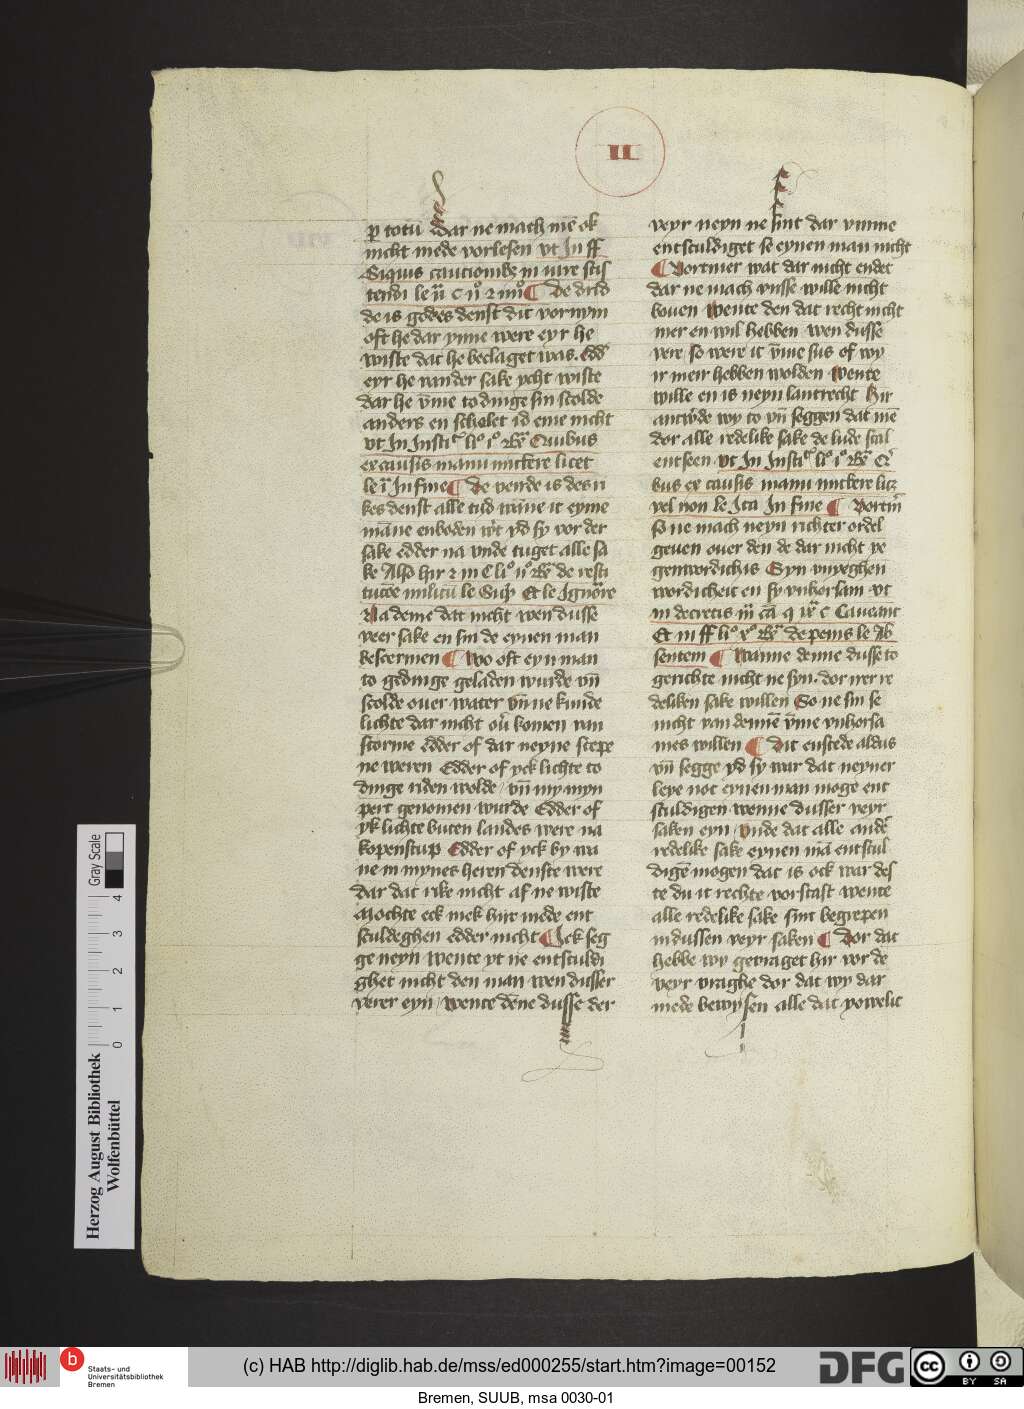 II
p totū Dar ne mach mē ok
nicht mede vorlesen vt In ff
Siquis caucionibꝫ in iure stis
tendi le ij c ijº 2 iiijº ¶ De drid
de is godes denst dit vornym
oft he dar ynne were eyr he
wiste dat he beclaget was. Edď
eyr he vander sake ycht wiste
dar he v̄me to dinge sin scolde
anders en scholet id eme nicht
vt In Instiᶜ liº iº Rꝫ Quibus
ex causis manu mittere licet
le i In fine ¶ De verde is des ri
kes denst alle tijd wāne it eyme
māne enboden wt yd sy vor der
sake edder na vnde tuget alle sa
ke Also hir 2 in C liº ijº Rꝫ de resti
tucōe militū le Sup Et le Ignore
Na deme dat nicht wen dusse
veer sake en sin de eynen man
bescermen ¶ Wo oft eyn man
to gedinge geladen wurde vn̄
scolde ouer water vn̄ ne kunde
lichte dar nicht ou̇ komen van
storme Edder of dar neyne scepe
ne weren Edder of yck lichte to
dinge riden wolde / vn̄ my myn
pert genomen wurde Edder of
yk lichte buten landes were na
kopenscup Edder of yck by wa
ne in mynes heren denste were
dar dat rike nicht af ne wiste
Mochte eck mek hijr mede ent
sculdeghen edder nicht ¶ Ick seg
ge neyn Wente yt ne entsculdi
ghet nicht den man wen dusser
verer eyn / wente dēne dusse der
veyr neyn ne sint dar ynnne
entsculdiget se eynen man nicht
¶ Vortmer wat dar nicht endet
dar ne mach vnsse wille nicht
bouen Wente den dat recht nicht
mer en wil hebben wen dusse
vere so were it v̄me sus of wy
ir meir hebben wolden Wente
wille en is neyn lantrecht Hir
antw̄de wy to vn̄ seggen dat mē
dor alle redelike sake de lude scal
entseen vt In Instiᶜ liº iº Rꝫ Qͥ
bus ex causis manu mittere licꝫ
vel non le Ita In fine ¶ Vortm̄
so ne mach neyn richter ordel
geuen ouer den de dar nicht ye
genwordich is Syn vnyeghen
wordicheit en sy vnhorsam vt
in decretis iij cā q ix c Caueant
Et in ff liº xº Rꝫ de penis le Ab
sentem ¶ Wanne denne dusse to
gerichte nicht ne syn. dor irer re
deliken sake willen So ne sin se
nicht van dennē v̄me vnhorsa
mes willen ¶ Dit enstede aldus
vn̄ segge yd sy war dat neyner
leye not eynen man moge ent
sculdigen wenne dusser veyr
saken eyn vnde dat alle andē
redelike sake eynen mā entscul
digē mogen dat is ock war des
te du it rechte vorstast wente
alle redelike sake sint begrepen
in dussen veyr saken ¶ Dor dat
hebbe wy gevraget hir vor de
veyr vraghe dor dat wy dar
mede bewysen alle dat yowelic
Gray Scale
0 1 2 3 4
Herzog August Bibliothek
Wolfenbüttel
b
Staats- und
Universitätsbibliothek
Bremen
(c) HAB http://diglib.hab.de/mss/ed000255/start.htm?image=00152
DFG
cc
BY SA
Bremen, SUUB, msa 0030-01